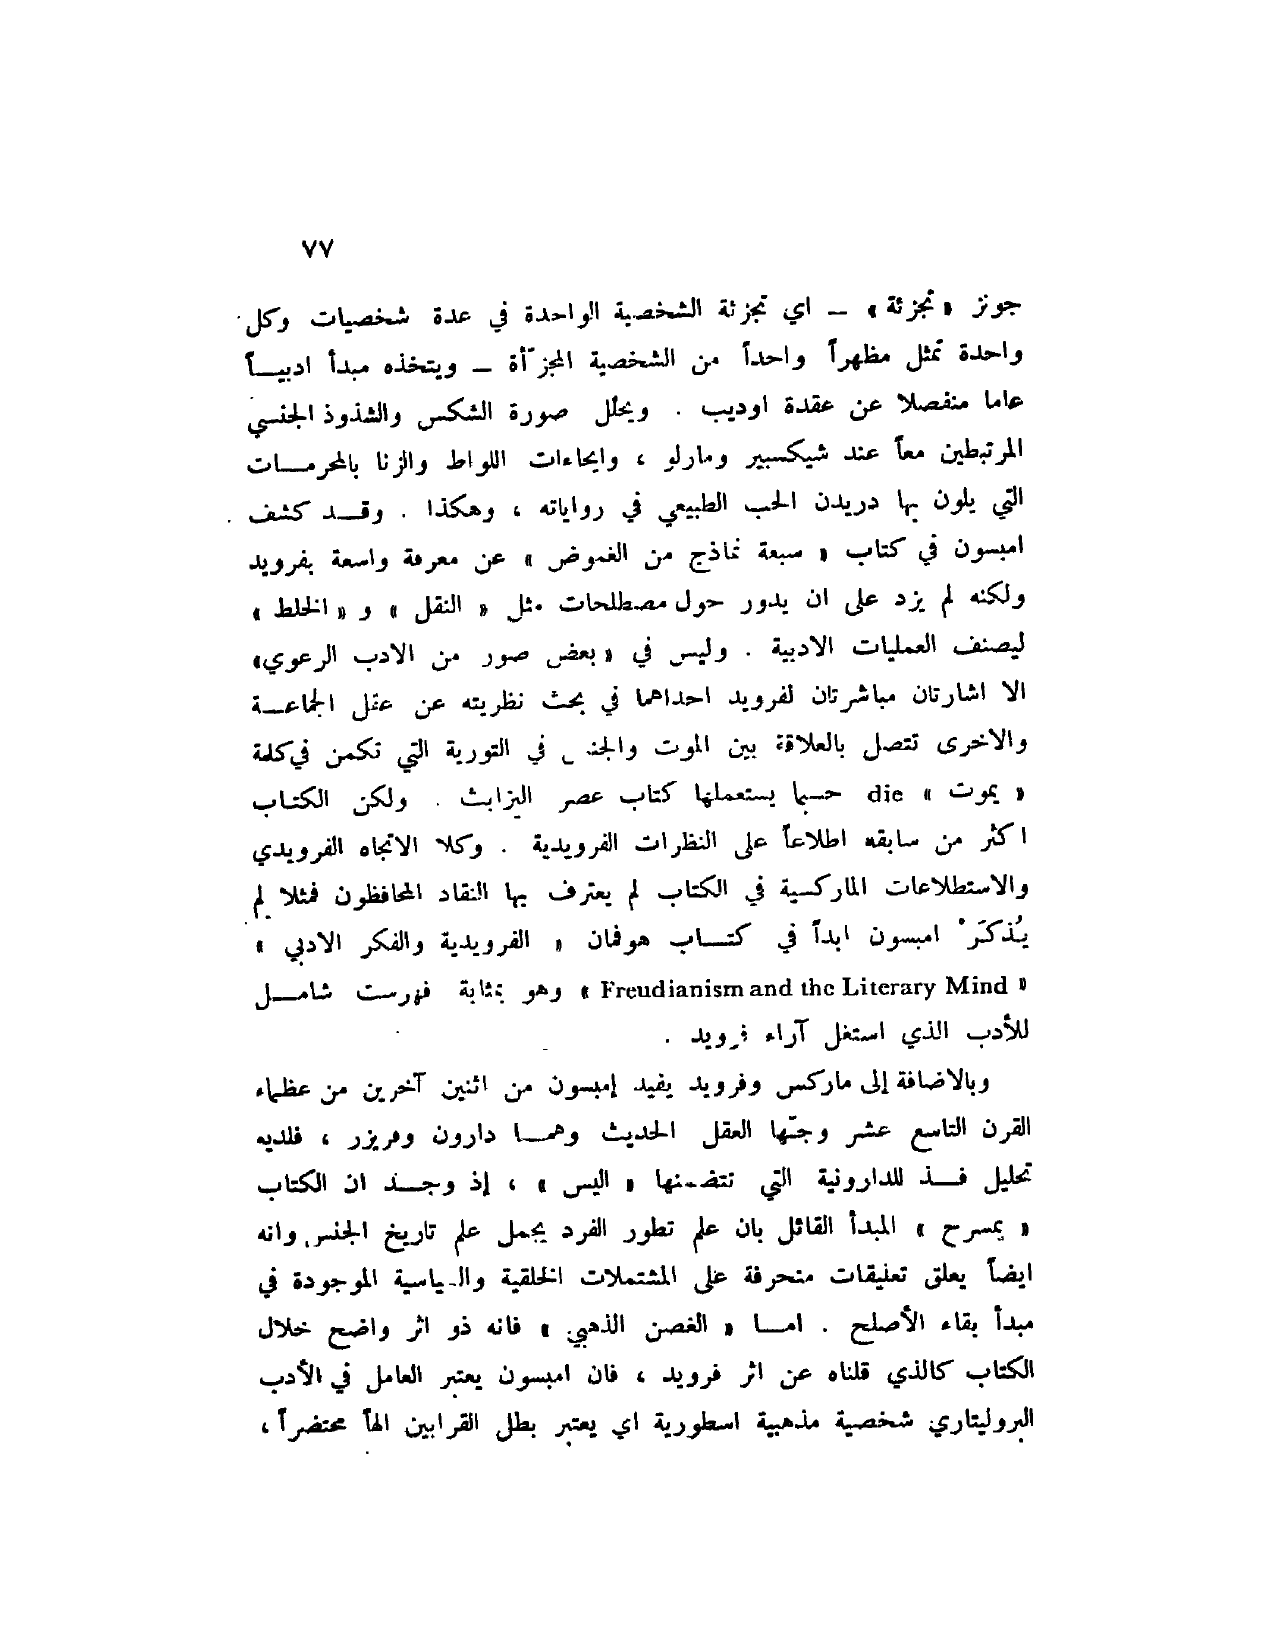 ٧٧
جونز « تجزئة » – اي تجزئة الشخصية الواحدة في عدة شخصيات وكل
واحدة تمثل مظهراً واحداً من الشخصية المجزّأة – ويتخذه مبدأ ادبيـــاً
عاما منفصلا عن عقدة اوديب . ويحلل صورة الشكس والشذوذ الجنسي
المرتبطين معاً عند شيكسبير ومارلو ، وايحاءات اللواط والزنا بالمحرمـــات
التي يلون بها دريدن الحب الطبيعي في رواياته ، وهكذا . وقـــد كشف
امبسون في كتاب « سبعة نماذج من الغموض » عن معرفة واسعة بفرويد
ولكنه لم يزد على ان يدور حول مصطلحات مثل « النقل » و « الخلط »
ليصنف العمليات الادبية . وليس في « بعض صور من الادب الرعوي»
الا اشارتان مباشرتان لفرويد احداهما في بحث نظريته عن عقل الجماعـــة
والاخرى تتصل بالعلاقة بين الموت والجنس في التورية التي تكمن في كلمة
« يموت » die حسبما يستعملها كتاب عصر اليزابث . ولكن الكتـــاب
اكثر من سابقه اطلاعاً على النظرات الفرويدية . وكلا الاتجاه الفرويدي
والاستطلاعات الماركسية في الكتاب لم يعترف بها النقاد المحافظون فمثلا لم
يُذكَرْ امبسون ابداً في كتـــاب هوفمان « الفرويدية والفكر الادبي »
« Freudianism and the Literary Mind » وهو بمثابة فهرست شامـــل
للأدب الذي استغل آراء فرويد .
وبالاضافة إلى ماركس وفرويد يفيد إمبسون من اثنين آخرين من عظماء
القرن التاسع عشر وجّها العقل الحديث وهمـــا دارون وفريزر ، فلديه
تحليل فـــذ للدارونية التي تتضمنها « اليس » ، إذ وجـــد ان الكتاب
« يمسرح » المبدأ القائل بان علم تطور الفرد يجمل علم تاريخ الجنس وانه
ايضاً يعلق تعليقات منحرفة على المشتملات الخلقية والسياسية الموجودة في
مبدأ بقاء الأصلح . امـــا « الغصن الذهبي » فانه ذو اثر واضح خلال
الكتاب كالذي قلناه عن اثر فرويد ، فان امبسون يعتبر العامل في الأدب
البروليتاري شخصية مذهبية اسطورية اي يعتبر بطل القرابين الهاً محتضراً ،